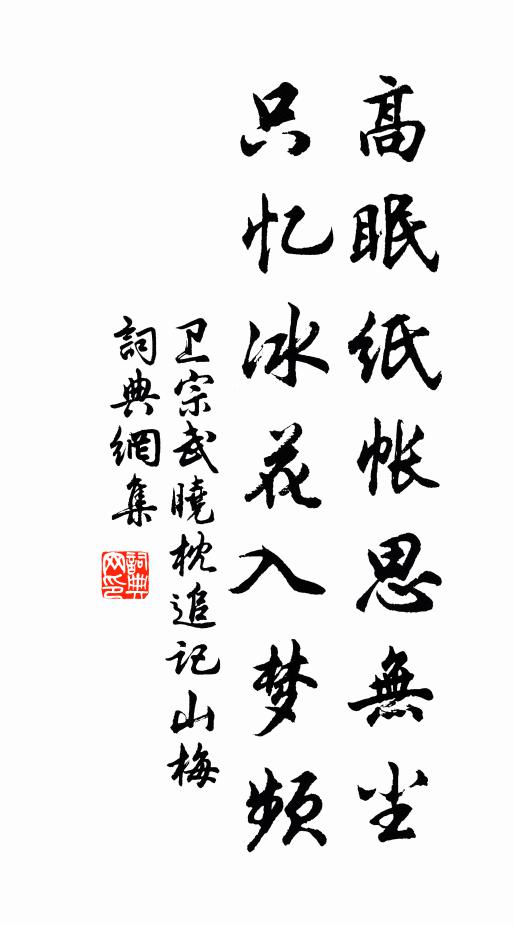 高眠纸帐思無尘
只忆冰花入梦频
卫宗武曉枕追记山梅
詞典網集
詞典网印